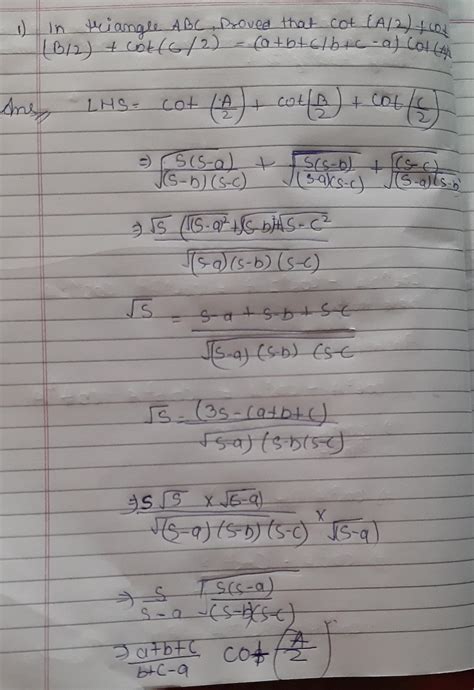 1) In triangle ABC, Proved that cot (A/2) + cot
(B/2) + cot (C/2) = (a+b+c/b+c-a) Cot (A/2
Ans LHS = cot (A/2) + cot (B/2) + cot (C/2)
⇒ √S(S-a)/√(S-b)(S-c) + √S(S-b)/√(S-a)(S-c) + √(S-c)/√(S-a)(S-b
⇒ √S (√(S-a²+√(S-b)²+√S-c²/√(S-a)(S-b)(S-c)
√S = S-a + S-b + S-c/√(S-a)(S-b)(S-c
√S = (3S-(a+b+c)/√S-a)(S-b(S-c)
⇒ S√S × √S-a)/√(S-a)(S-b)(S-c) × √(S-a)
⇒ S/S-a √S(S-a)/√(S-b)(S-c)
⇒ a+b+c/b+c-a cot (A/2)